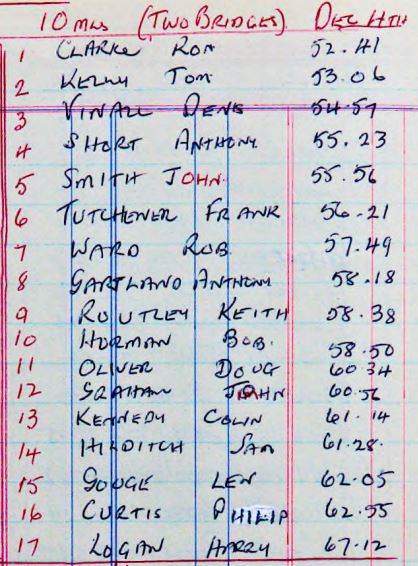 10 MLS (TWO BRIDGES) DEC 4TH
1 CLARKE RON 52.41
2 KELLY TOM 53.06
3 VINALL DENS 54.57
4 SHORT ANTHONY 55.23
5 SMITH JOHN 55.56
6 TUTCHENER FRANK 56.21
7 WARD ROB 57.49
8 GARTLAND ANTHONY 58.18
9 ROUTLEY KEITH 58.38
10 HORMAN BOB. 58.50
11 OLIVER DOUG 60.34
12 GRAHAM JOHN 60.56
13 KENNEDY COLIN 61.14
14 HILDITCH SAM 61.28.
15 GOUGE LEN 62.05
16 CURTIS PHILIP 62.55
17 LOGAN HARRY 67.12